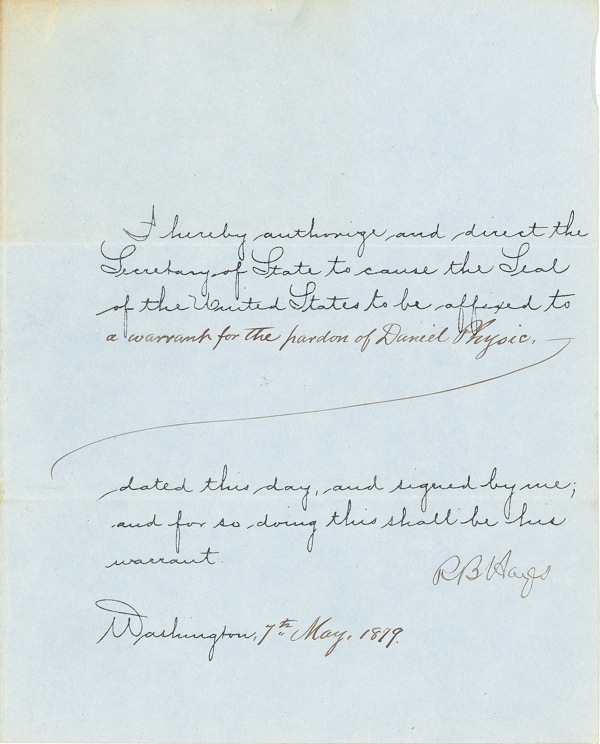 I hereby authorize and direct the
Secretary of State to cause the Seal
of the United States to be affixed to
a warrant for the pardon of Daniel Physic.
dated this day, and signed by me;
and for so doing this shall be his
warrant.
R B Hayes
Washington, 7th May, 1879.